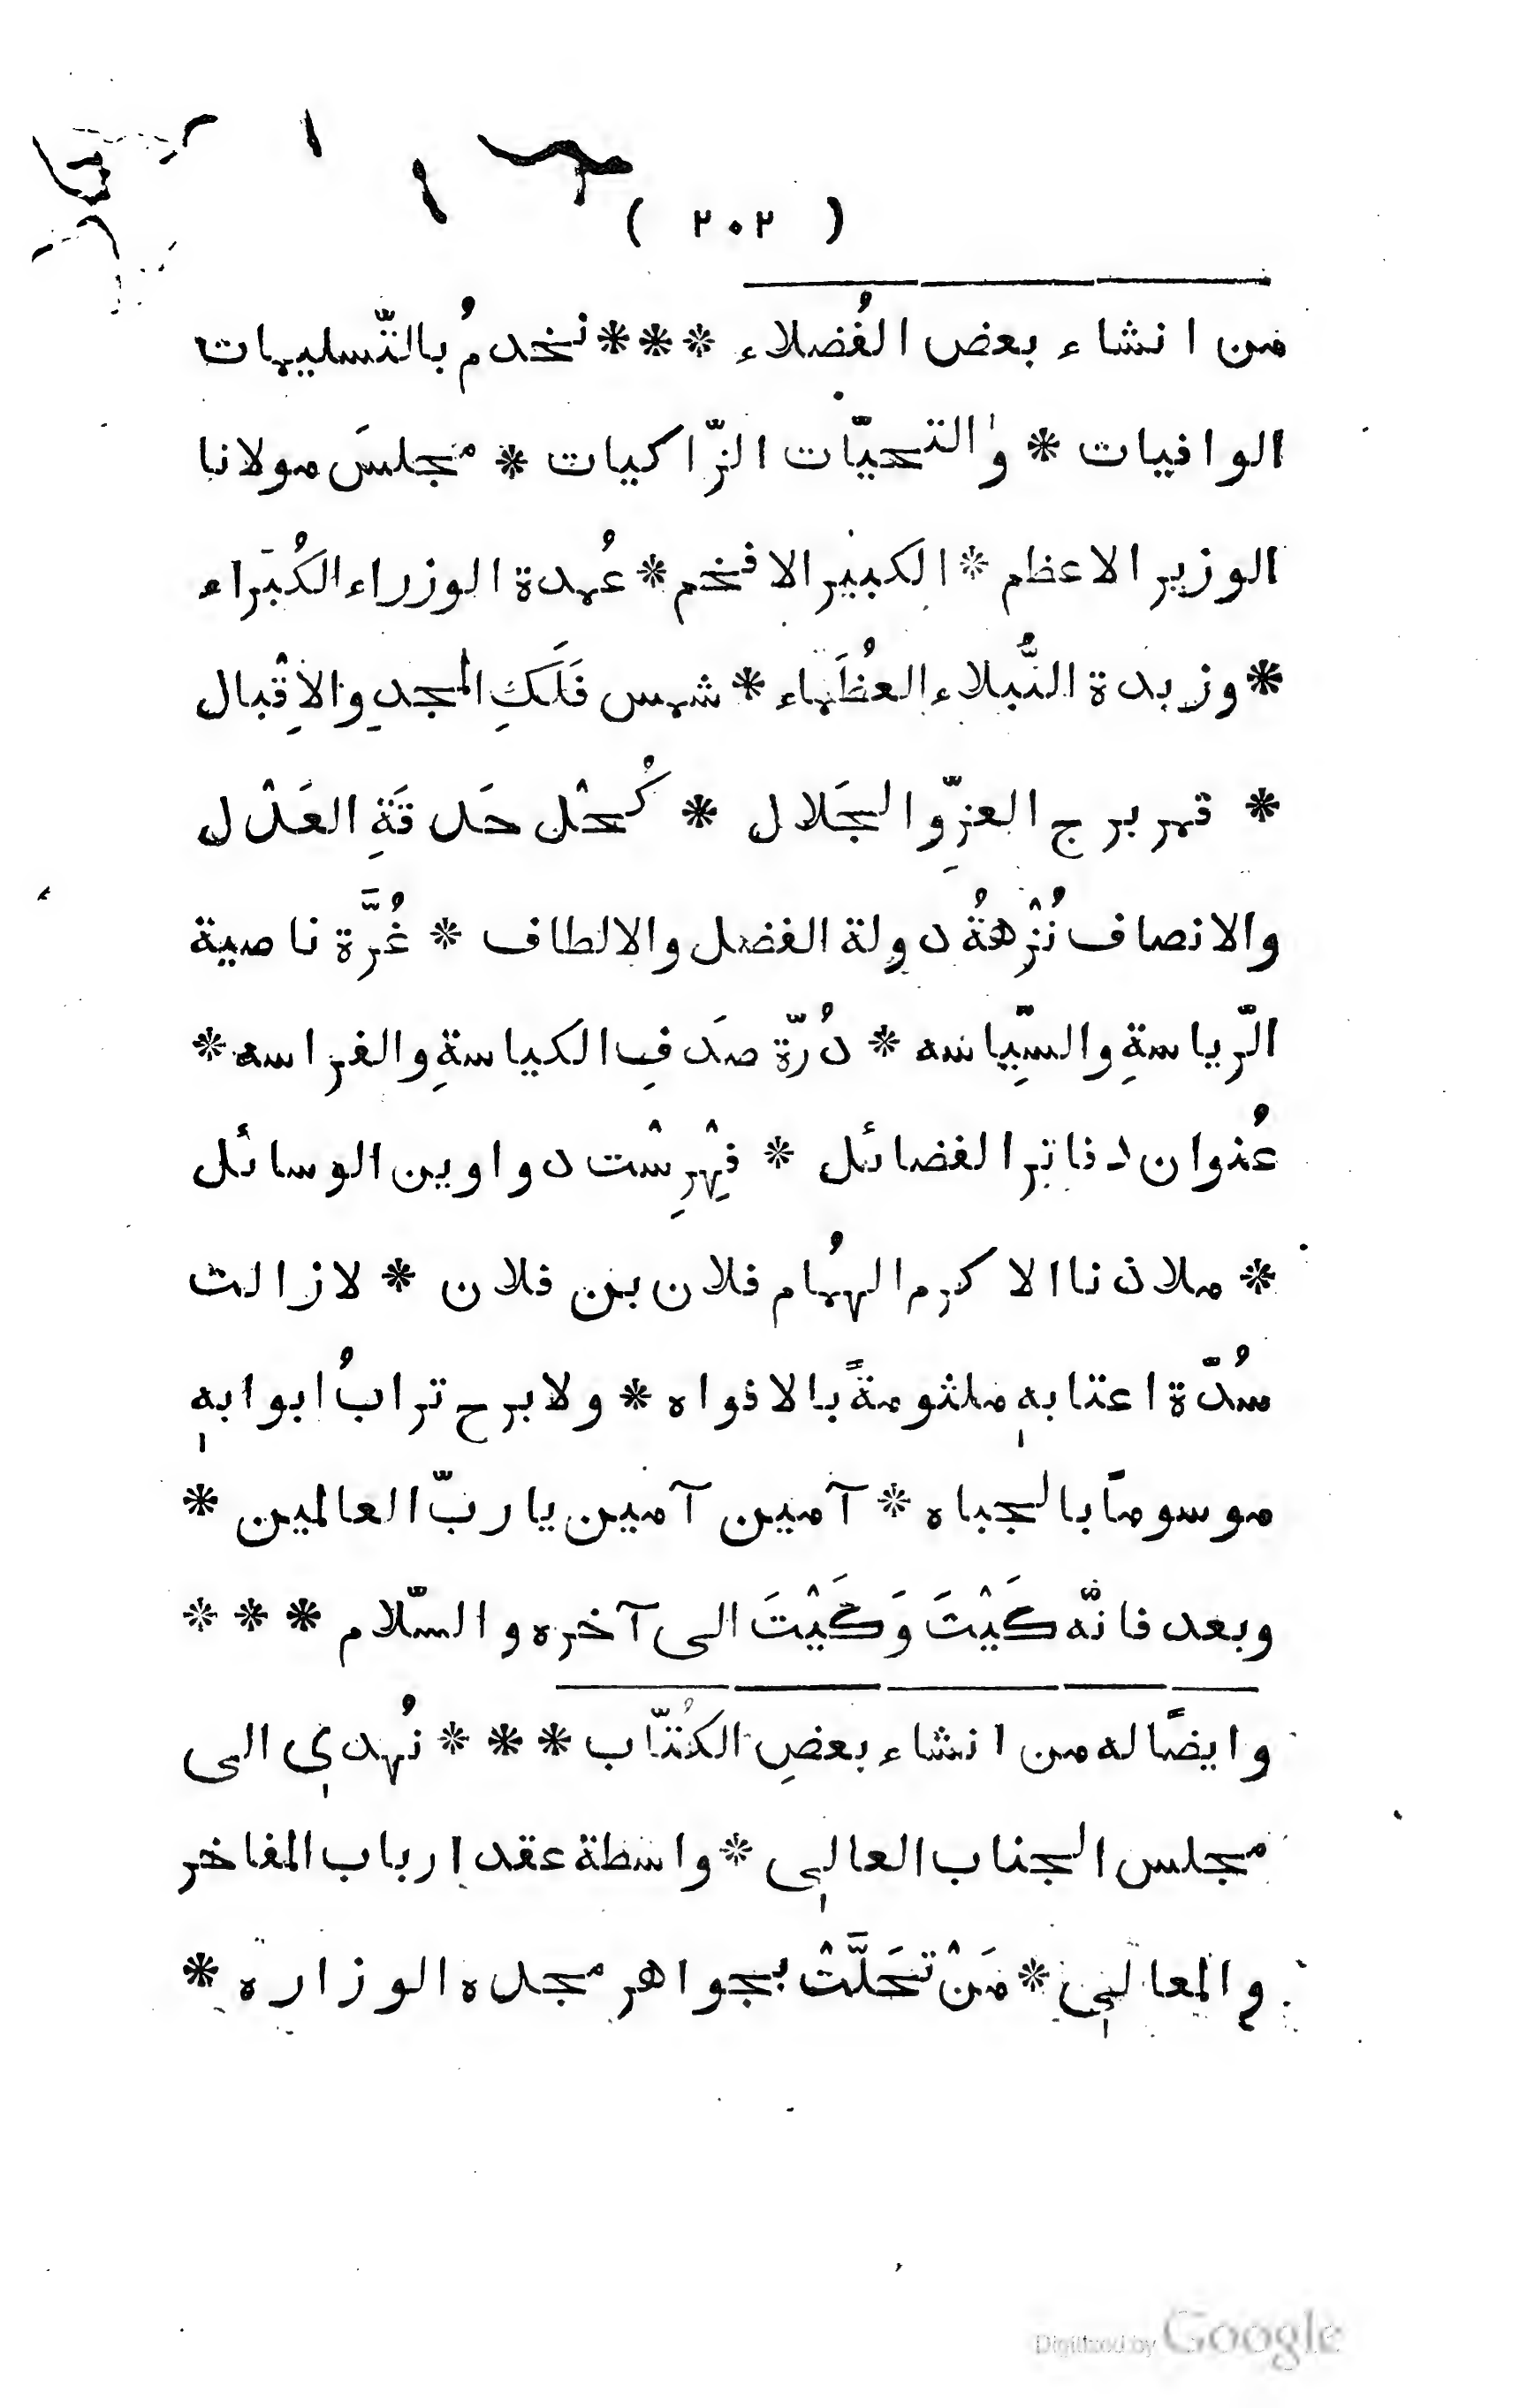 ( ٢٠٢ )
من انشاء بعض الفُضلاء * * * نخدمُ بالتّسليمات
الوافيات * والتحيّات الزّاكيات * مجلسَ مولانا
الوزير الاعظم * الكبير الافخم * عُمدة الوزراء الكُبَراء
* وزبدة النُّبلاء العظَماء * شمس فَلَكِ المجدِ والاِقْبال
* قمر برج العزِّ والجَلال * كُحْل حَدقَةِ العَدْل
والانصاف نُزْهةُ دولة الفضل والالطاف * غُرَّة ناصية
الرّياسةِ والسِّياسه * دُرّة صدَفِ الكياسةِ والفراسه *
عُنوان دفاتر الفضائل * فِهْرِسْت دواوين الوسائل
* ملاذنا الاكرم الهمُام فلان بن فلان * لازالت
سُدّة اعتابهٖ ملثومةً بالافواه * ولابرح ترابُ ابوابهٖ
موسوماً بالجباه * آمين آمين يا ربّ العالمين *
وبعد فانّه كَيْتَ وَكَيْتَ الى آخره والسّلام * * *
وايضًا له من انشاء بعضِ الكُتّاب * * * نُهدي الى
مجلس الجناب العالي * واسطة عقد ارباب المفاخر
والمعالي * مَنْ تحَلَّتْ بجواهر مجده الوزاره *
Digitized by Google